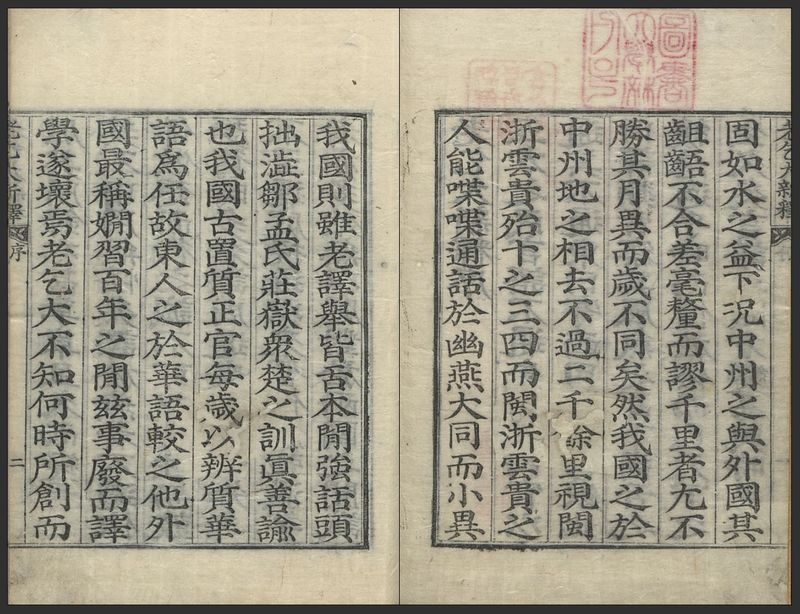 固如水之益下況中州之與外國其
齟齬不合差毫釐而謬千里者尤不
勝其月異而歲不同矣然我國之於
中州地之相去不過二千餘里視閩
浙雲貴殆十之三四而閩浙雲貴之
人能喋喋通話於幽燕大同而小異
我國則雖老譯舉皆舌本閒強話頭
拙澁鄒孟氏莊嶽衆楚之訓眞善諭
也我國古置質正官每歲以辨質華
語爲任故東人之於華語較之他外
國最稱嫺習百年之閒玆事廢而譯
學遂壞焉老乞大不知何時所創而
老乞大新釋
序
二